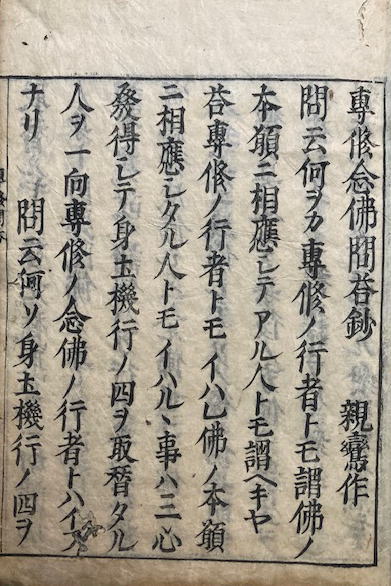 專修念佛問荅鈔　親鸞作
問云何ヲカ專修ノ行者トモ謂佛ノ
本願ニ相應シテアル人トモ謂ヘキヤ
荅專修ノ行者トモイハレ佛ノ本願
ニ相應シタル人トモイハルヽ事ハ三心
發得シテ身土機行ノ四ヲ取替タル
人ヲ一向專修ノ念佛ノ行者トハイフ
ナリ　問云何ソノ身土機行ノ四ヲ